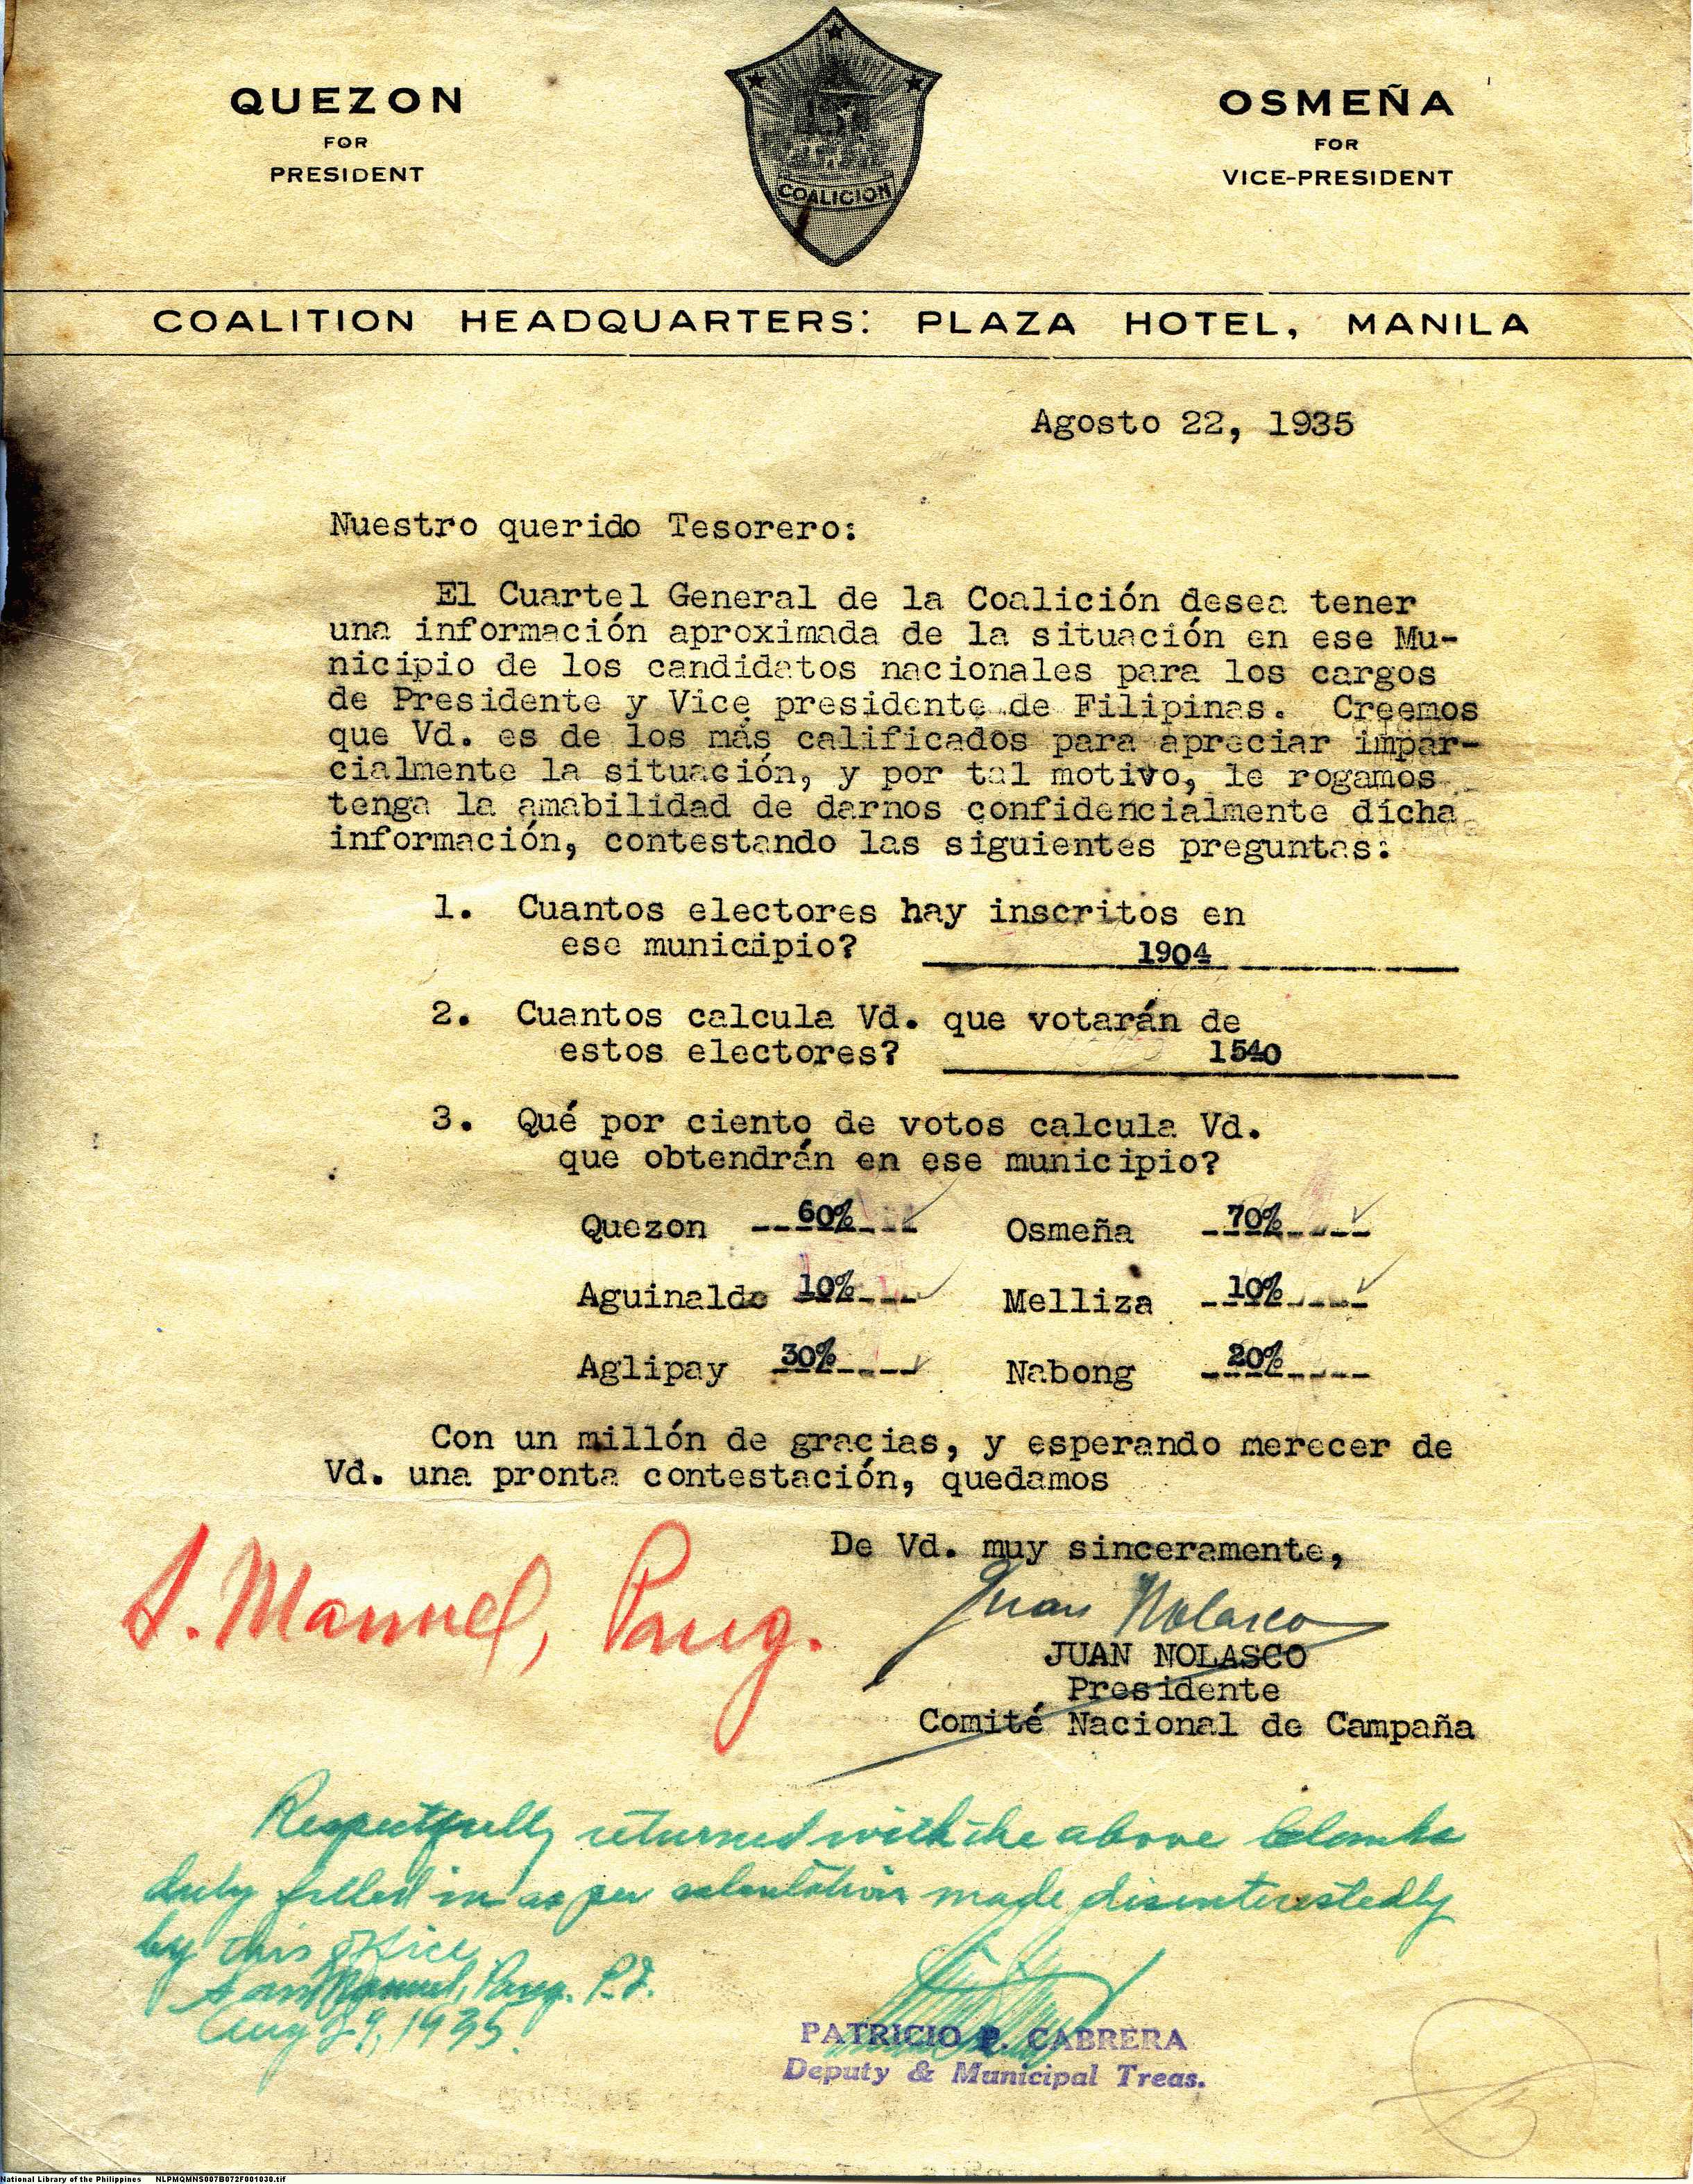 QUEZON
FOR
PRESIDENT
COALICION
OSMEÑA
FOR
VICE-PRESIDENT
COALITION HEADQUARTERS: PLAZA HOTEL, MANILA
Agosto 22, 1935
Nuestro querido Tesorero:
El Cuartel General de la Coalición desea tener
una información aproximada de la situación en ese Mu-
nicipio de los candidatos nacionales para los cargos
de Presidente y Vice presidente de Filipinas. Creemos
que Vd. es de los más calificados para apreciar impar-
cialmente la situación, y por tal motivo, le rogamos
tenga la amabilidad de darnos confidencialmente dicha
información, contestando las siguientes preguntas:
1. Cuantos electores hay inscritos en
ese municipio? 1904
2. Cuantos calcula Vd. que votarán de
estos electores? 1540
3. Qué por ciento de votos calcula Vd.
que obtendrán en ese municipio?
Quezon 60% Osmeña 70%
Aguinaldo 10% Melliza 10%
Aglipay 30% Nabong 20%
Con un millón de gracias, y esperando merecer de
Vd. una pronta contestación, quedamos
De Vd. muy sinceramente,
S. Manuel, Pang.
Juan Nolasco
JUAN NOLASCO
Presidente
Comité Nacional de Campaña
Respectfully returned with the above blanks
duly filled in as per calculation made disinterestedly
by this office
San Manuel, Pang. P.I.
Aug 29, 1935.
PATRICIO P. CABRERA
Deputy & Municipal Treas.
National Library of the Philippines NLPMQMNS007B072F001030.tif